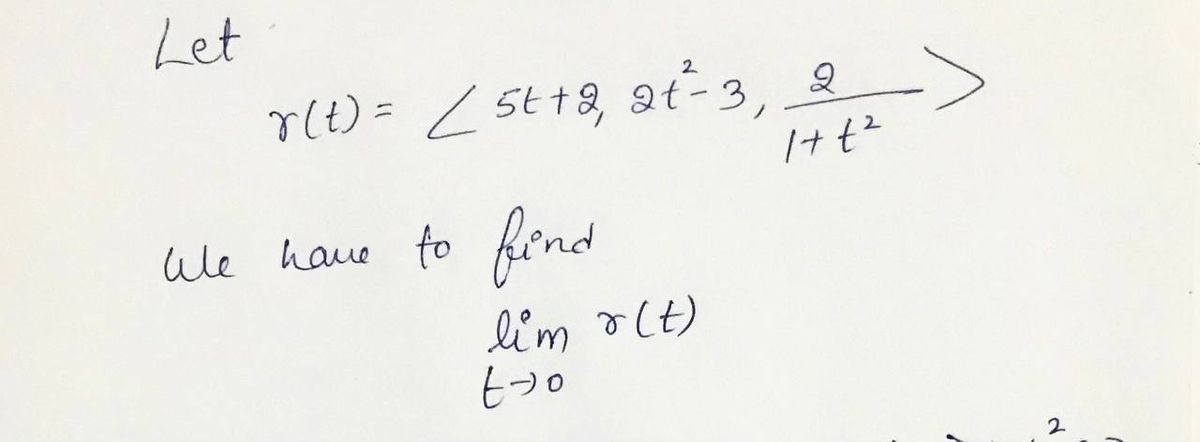 Let
r(t) = < 5t+2, 2t²-3, 2/(1+t²) >
We have to find
lim r(t)
t→0